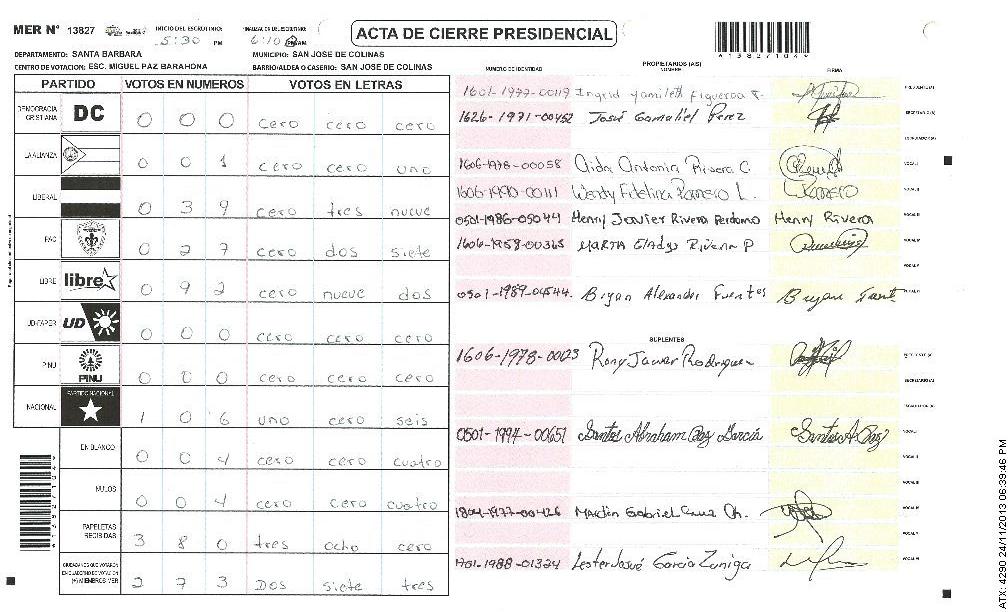 MER N° 13827 INICIO DEL ESCRUTINIO: 5:30 PM FINALIZACION DEL ESCRUTINIO: 6:10 PM AM
ACTA DE CIERRE PRESIDENCIAL
DEPARTAMENTO: SANTA BARBARA MUNICIPIO: SAN JOSE DE COLINAS
CENTRO DE VOTACION: ESC. MIGUEL PAZ BARAHONA BARRIO/ALDEA O CASERIO: SAN JOSE DE COLINAS
PARTIDO VOTOS EN NUMEROS VOTOS EN LETRAS
DEMOCRACIA CRISTIANA DC 0 0 0 cero cero cero
LA ALIANZA 0 0 1 cero cero uno
LIBERAL 0 3 9 cero tres nueve
PAC 0 2 7 cero dos siete
LIBRE libre 0 9 2 cero nueve dos
UD-FAPER UD 0 0 0 cero cero cero
PINU PINU 0 0 0 cero cero cero
NACIONAL PARTIDO NACIONAL 1 0 6 uno cero seis
EN BLANCO 0 0 4 cero cero cuatro
NULOS 0 0 4 cero cero cuatro
PAPELETAS RECIBIDAS 3 8 0 tres ocho cero
CIUDADANOS QUE VOTARON EN CUADERNO DE VOTACION (+) MIEMBROS MER 2 7 3 Dos siete tres
NUMERO DE IDENTIDAD PROPIETARIOS (AS) NOMBRE FIRMA
1601-1977-00119 Ingrid Yamileth Figueroa F. PRESIDENTE(A)
1626-1971-00452 José Gamaliel Perez SECRETARIO(A)
ESCRUTADOR(A)
1606-1978-00058 Aida Antonia Rivera C. VOCAL I
1606-1990-00111 Wendy Fidelina Romero L. Romero VOCAL II
0501-1986-05044 Henry Javier Rivera Perdomo Henry Rivera VOCAL III
1606-1958-00365 MARTA Gladys Rivera P VOCAL IV
VOCAL V
0501-1989-04544. Bryan Alexander Fuentes Bryan VOCAL VI
SUPLENTES
1606-1978-00123 Rony Javier Rodriguez PRESIDENTE(A)
SECRETARIO(A)
ESCRUTADOR(A)
0501-1994-00651 Santos Abraham Paz García Santos A. Paz VOCAL I
VOCAL II
VOCAL III
1804-1977-00426 Martin Gabriel Cruz Ch. VOCAL IV
VOCAL V
1701-1988-01324 Lester Josué Garcia Zuniga VOCAL VI
ATX: 4290 24/11/2013 06:39:46 PM